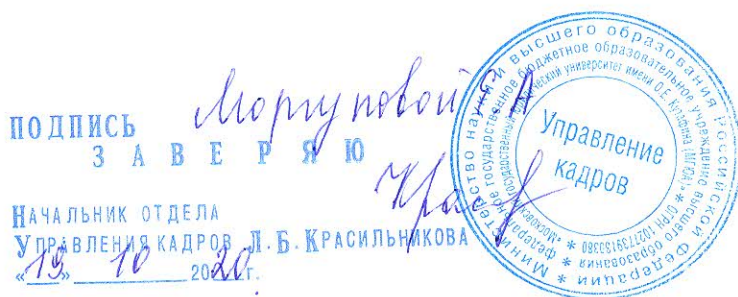 ПОДПИСЬ Моргуновой Е А
ЗАВЕРЯЮ
НАЧАЛЬНИК ОТДЕЛА
УПРАВЛЕНИЯ КАДРОВ Л.Б. КРАСИЛЬНИКОВА
«19» 10 2020г.
Министерство науки и высшего образования Российской Федерации *
федеральное государственное бюджетное образовательное учреждение высшего образования *
«Московский государственный юридический университет имени О.Е. Кутафина (МГЮА)» * ОГРН 1027739150380 *
Управление
кадров